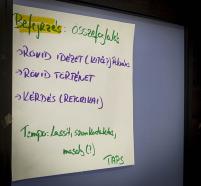 Befejezés: összefoglalás
→ RÖVID IDÉZET (KITŰZŐ)
→ RÖVID TÖRTÉNET
→ KÉRDÉS (RETORIKAI)
Tempo: lassít, szemkontaktus,
mosoly (!)
TAPS